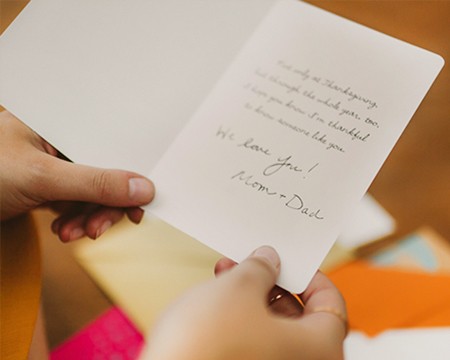 Not only at Thanksgiving,
but through the whole year, too,
I hope you know I'm thankful
to know someone like you.
We love you!
Mom + Dad